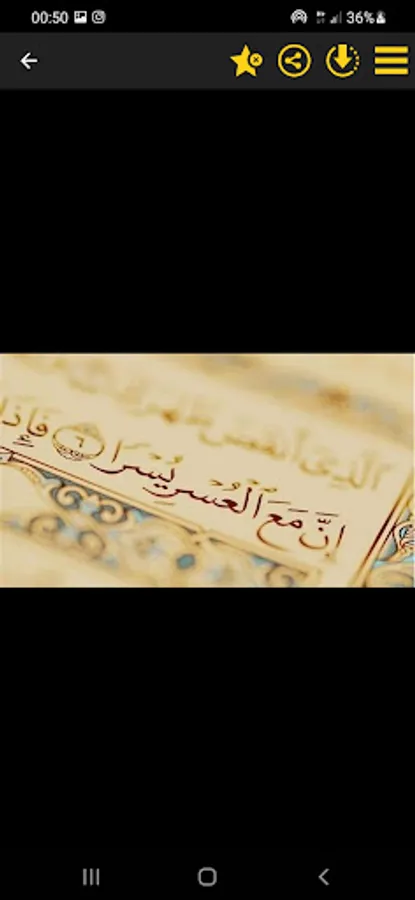 00:50
36%
الَّذِي أَنقَضَ ظَهْرَكَ
إِنَّ مَعَ الْعُسْرِ يُسْرًا ٦ فَإِذَا